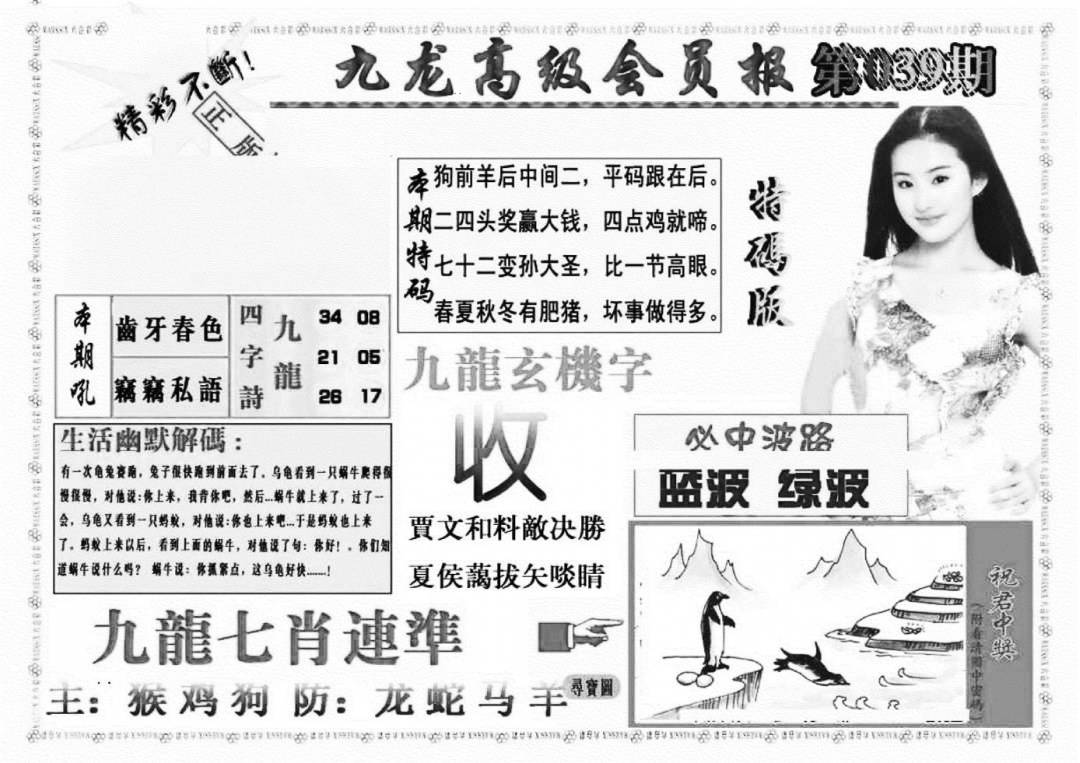 九龙高级会员报 第039期
精彩不斷!
正版
本期特码
狗前羊后中间二，平码跟在后。
二四头奖赢大钱，四点鸡就啼。
七十二变孙大圣，比一节高眼。
春夏秋冬有肥猪，坏事做得多。
特碼版
本期吼
齒牙春色
竊竊私語
四字詩
九龍
34 08
21 05
26 17
生活幽默解碼：
有一次龟兔赛跑，兔子很快跑到前面去了。乌龟看到一只蜗牛爬得很
慢很慢，对他说:你上来，我背你吧，然后...蜗牛就上来了，过了一
会，乌龟又看到一只蚂蚁，对他说:你也上来吧...于是蚂蚁也上来
了。蚂蚁上来以后，看到上面的蜗牛，对他说了句：你好！。你们知
道蜗牛说什么吗？ 蜗牛说：你抓紧点，这乌龟好快......!
九龍玄機字
收
賈文和料敵决勝
夏侯藹拔矢啖睛
必中波路
蓝波 绿波
九龍七肖連準
主：猴鸡狗 防：龙蛇马羊
尋寶圖
祝君中獎
(附看清圖中密碼)